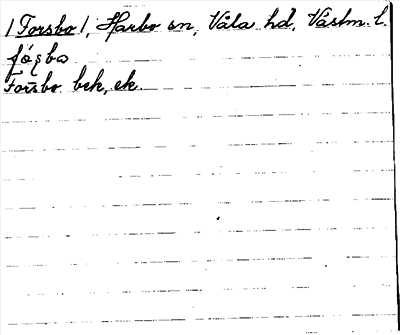 /Forsbo/, Harbo sn, Våla hd, Västm. l.
Forsbo bek, ek.